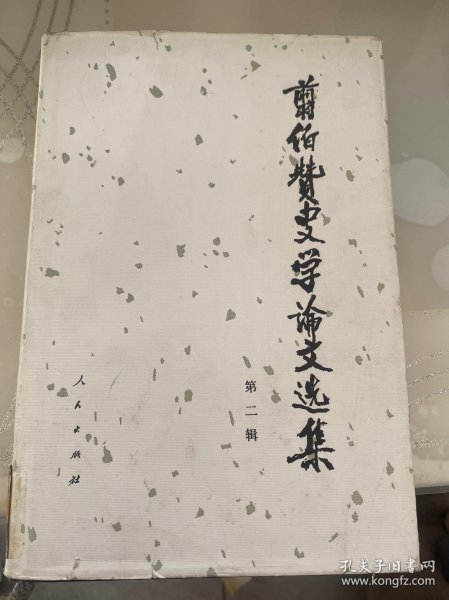 翦伯赞史学论文选集
第二辑
人民出版社
孔夫子旧书网
www.kongfz.com